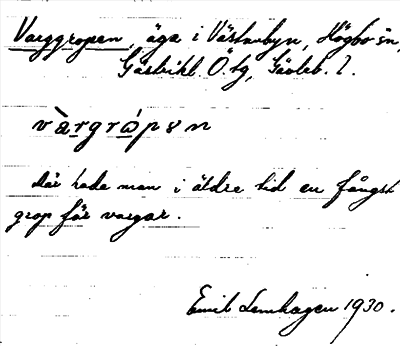 Varggropen, äga i Västanbyn, Högbo sn,
Gästrikl. Ö. tg, Gävleb. l.
vàrgrópən
där hade man i äldre tid en fångst
grop för vargar.
Emil Lenhagen 1930.